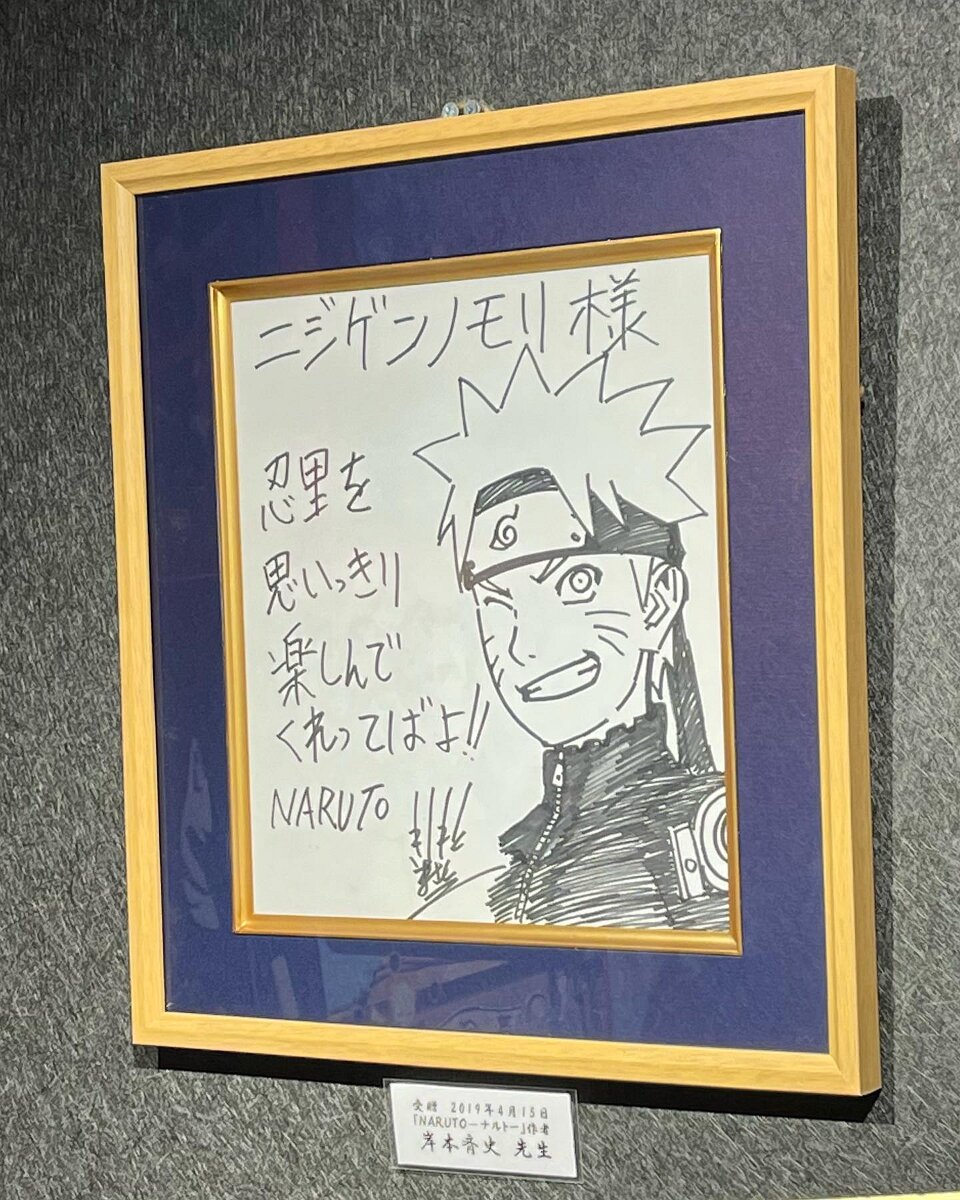 ニジゲンノモリ様
忍里を
思いっきり
楽しんで
くれってばよ!!
NARUTO
受贈 2019年4月15日
「NARUTO－ナルト－」作者
岸本斉史 先生